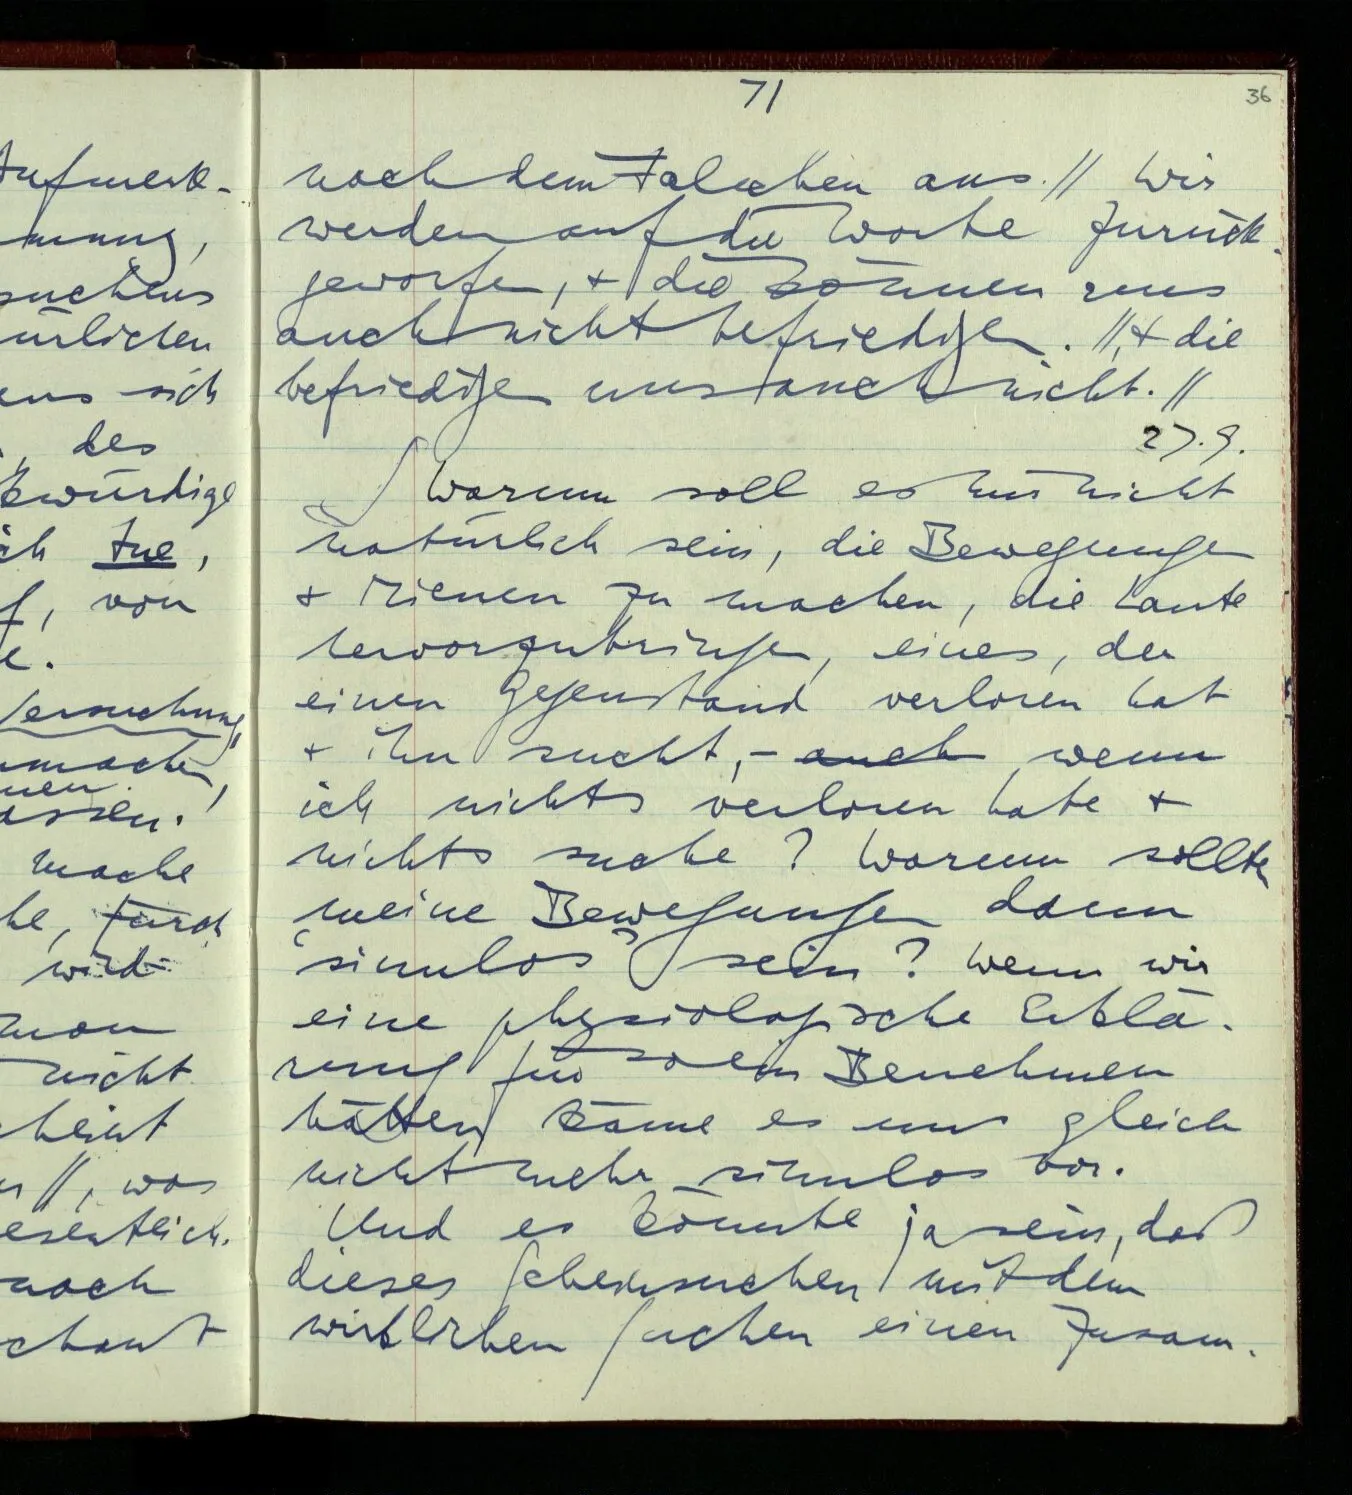 71
36
Aufmerk-
suchens
ürlichen
ens sich
, des
kwürdige
ich tue,
f, von
Versuchung,
nmachen,
nen
assen.
mache
he, durch
wird
man
nicht
cheint
n //, was
esentlich.
nach
chaut
nach dem Falschen aus. // Wir
werden auf die Worte zurück-
geworfen, + die können uns
auch nicht befriedigen. //, + die
befriedigen uns auch nicht. //
27.9.
∫ Warum soll es mir nicht
natürlich sein, die Bewegungen
+ Mienen zu machen, die Laute
hervorzubringen, eines, der
einen Gegenstand verloren hat
+ ihn sucht, – auch wenn
ich nichts verloren habe +
nichts suche? Warum sollten
meine Bewegungen dann
‘sinnlos’ sein? Wenn wir
eine physiologische Erklä-
rung für so ein Benehmen
hätten käme es uns gleich
nicht mehr sinnlos vor.
Und es könnte ja sein, daß
dieses Scheinsuchen mit dem
wirklichen Suchen einen Zusam-